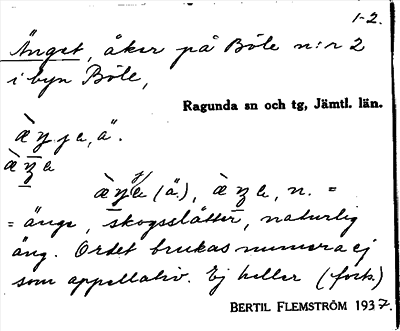 1-2.
Änget, åker på Böle n:r 2
i byn Böle,
Ragunda sn och tg, Jämtl. län.
(ä.), n. =
= änge, skogsslåtter, naturlig
äng. Ordet brukas numera ej
som appellativ. Ej heller (forts.)
BERTIL FLEMSTRÖM 1937.